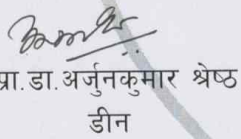 प्रा.डा.अर्जुनकुमार श्रेष्ठ
डीन